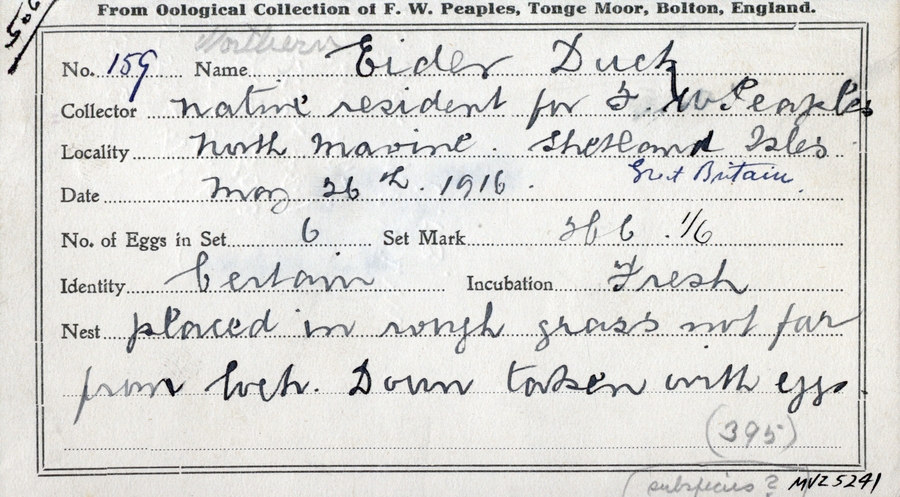 From Oological Collection of F. W. Peaples, Tonge Moor, Bolton, England.
Northern
No. 159 Name Eider Duck
Collector native resident for F. W. Peaples
Locality North Mavine. Shetland Isles
Great Britain.
Date May 26th. 1916.
No. of Eggs in Set 6 Set Mark 266 . 1/6
Identity Certain Incubation Fresh
Nest placed in rough grass not far
from loch. Down taken with eggs.
(395)
(subspecies?
MVZ 5241